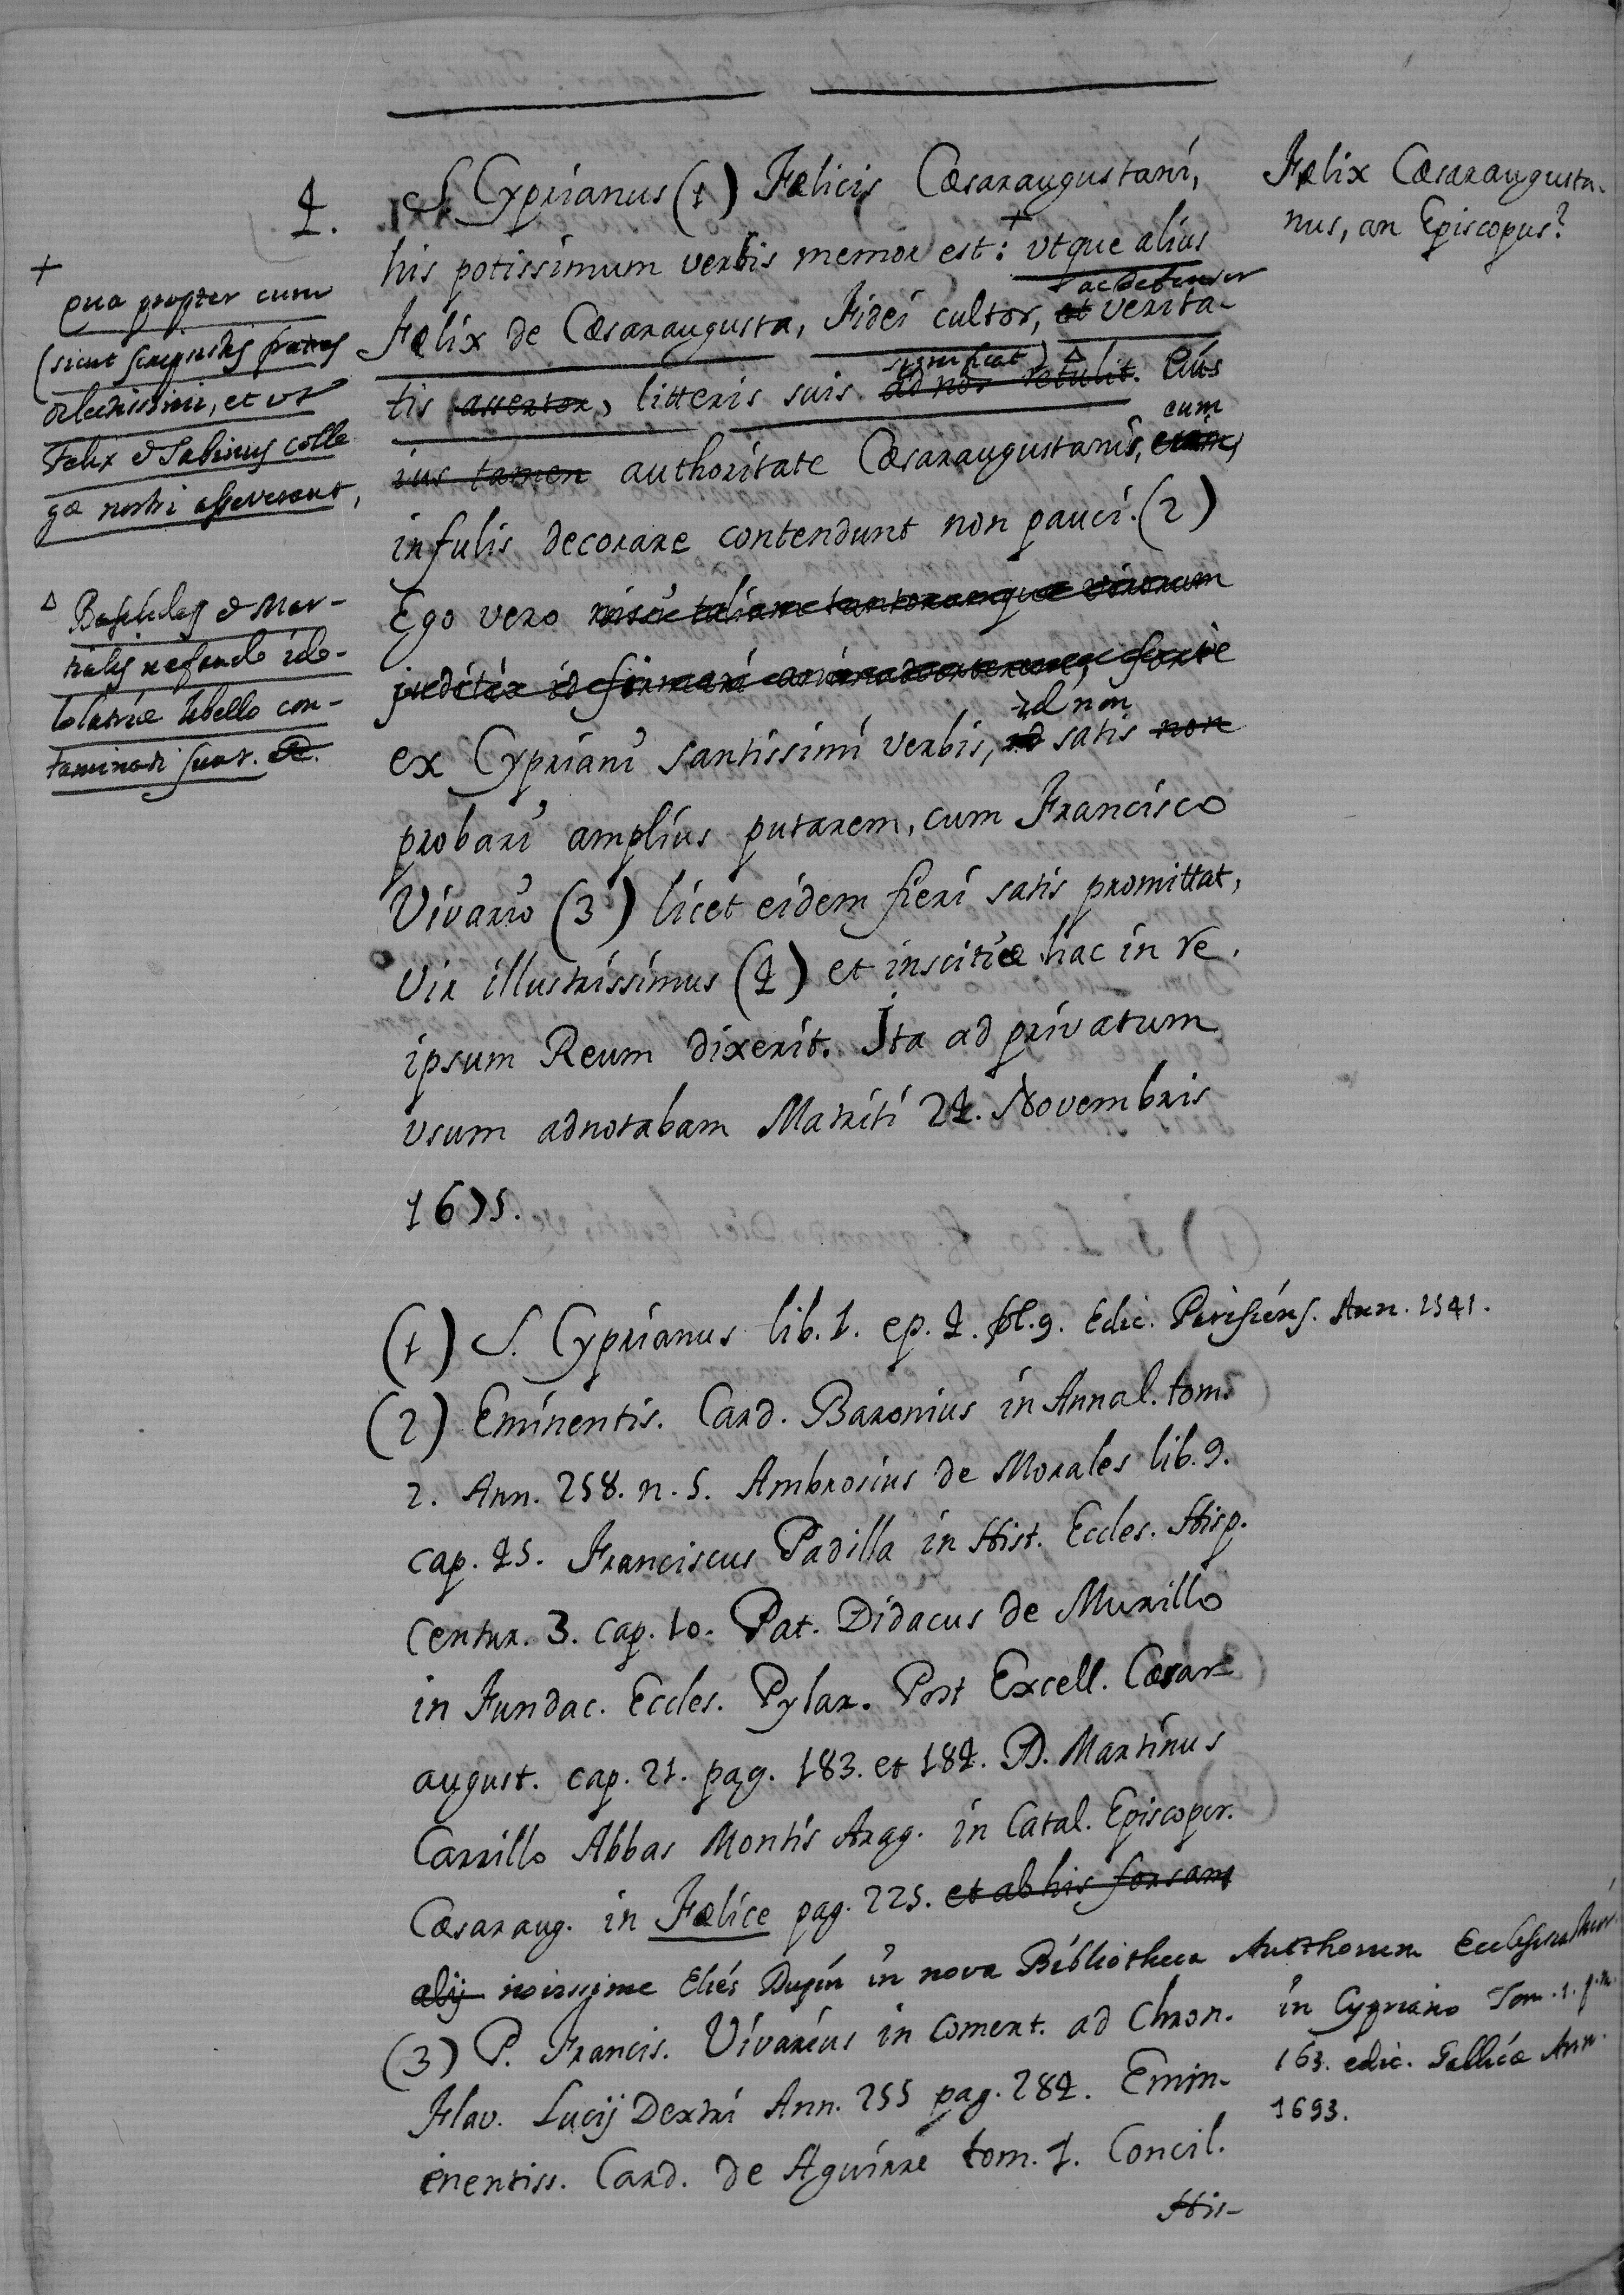 4. S Cyprianus (1) Fælicis Cæsaraugustani,
his potissimum verbis memor est: + utque alius
Fælix de Cæsaraugusta, Fidei cultor, et ac defensor verita-
tis assertor, litteris suis ad nos retulit. significat) Δ Eius
ius tamen authoritate Cæsaraugustanis, cum
infulis decorare contendunt non pauci. (2)
Ego vero
ex Cypriani santissimi verbis, id non satis non
probari amplius putarem, cum Francisco
Vivario (3) licet eidem fieri satis promittat,
vir illustrissimus (4) et inscitiæ hac in re
ipsum Reum dixerit. Ita ad privatum
usum adnotabam Matriti 24. Novembris
1675.
Fælix Cæsaraugusta-
nus, an Episcopus?
+
qua propter cum
(sicut scripsistis fratres
dilectissimi, et ut
Felix & Sabinus colle
gæ nostri asseverant,
Δ Basilides & Mar-
tialis nefando ido-
lolatriæ libello con-
taminati sunt. &.
(1) S. Cyprianus lib. 1. ep. 4. fol. 9. Edic. Parisiens. Ann. 1541.
(2) Eminentis. Card. Baronius in Annal. tom.
2. Ann. 258. n. 5. Ambrosius de Morales lib. 9.
cap. 45. Franciscus Padilla in Hist. Eccles. Hisp.
Centur. 3. cap. 10. Pat. Didacus de Murillo
in Fundac. Eccles. Pylar. Post Excell. Cæsar-
august. cap. 21. pag. 183. et 184. D. Martinus
Carrillo Abbas Montis Arag. in Catal. Episcopor.
Cæsaraug. in Fælice pag. 225. et ab his forsam
alij novissime Eliés Dupin in nova Bibliotheca Authorum Ecclesiasticor.
in Cypriano Tom. 1. p. m.
163. edic. Gallicæ Ann.
1693.
(3) P. Francis. Vivarius in Coment. ad Chron.
Flav. Lucij Dextri Ann. 255 pag. 284. Emin-
enentiss. Card. de Aguirre tom. 1. Concil.
His-